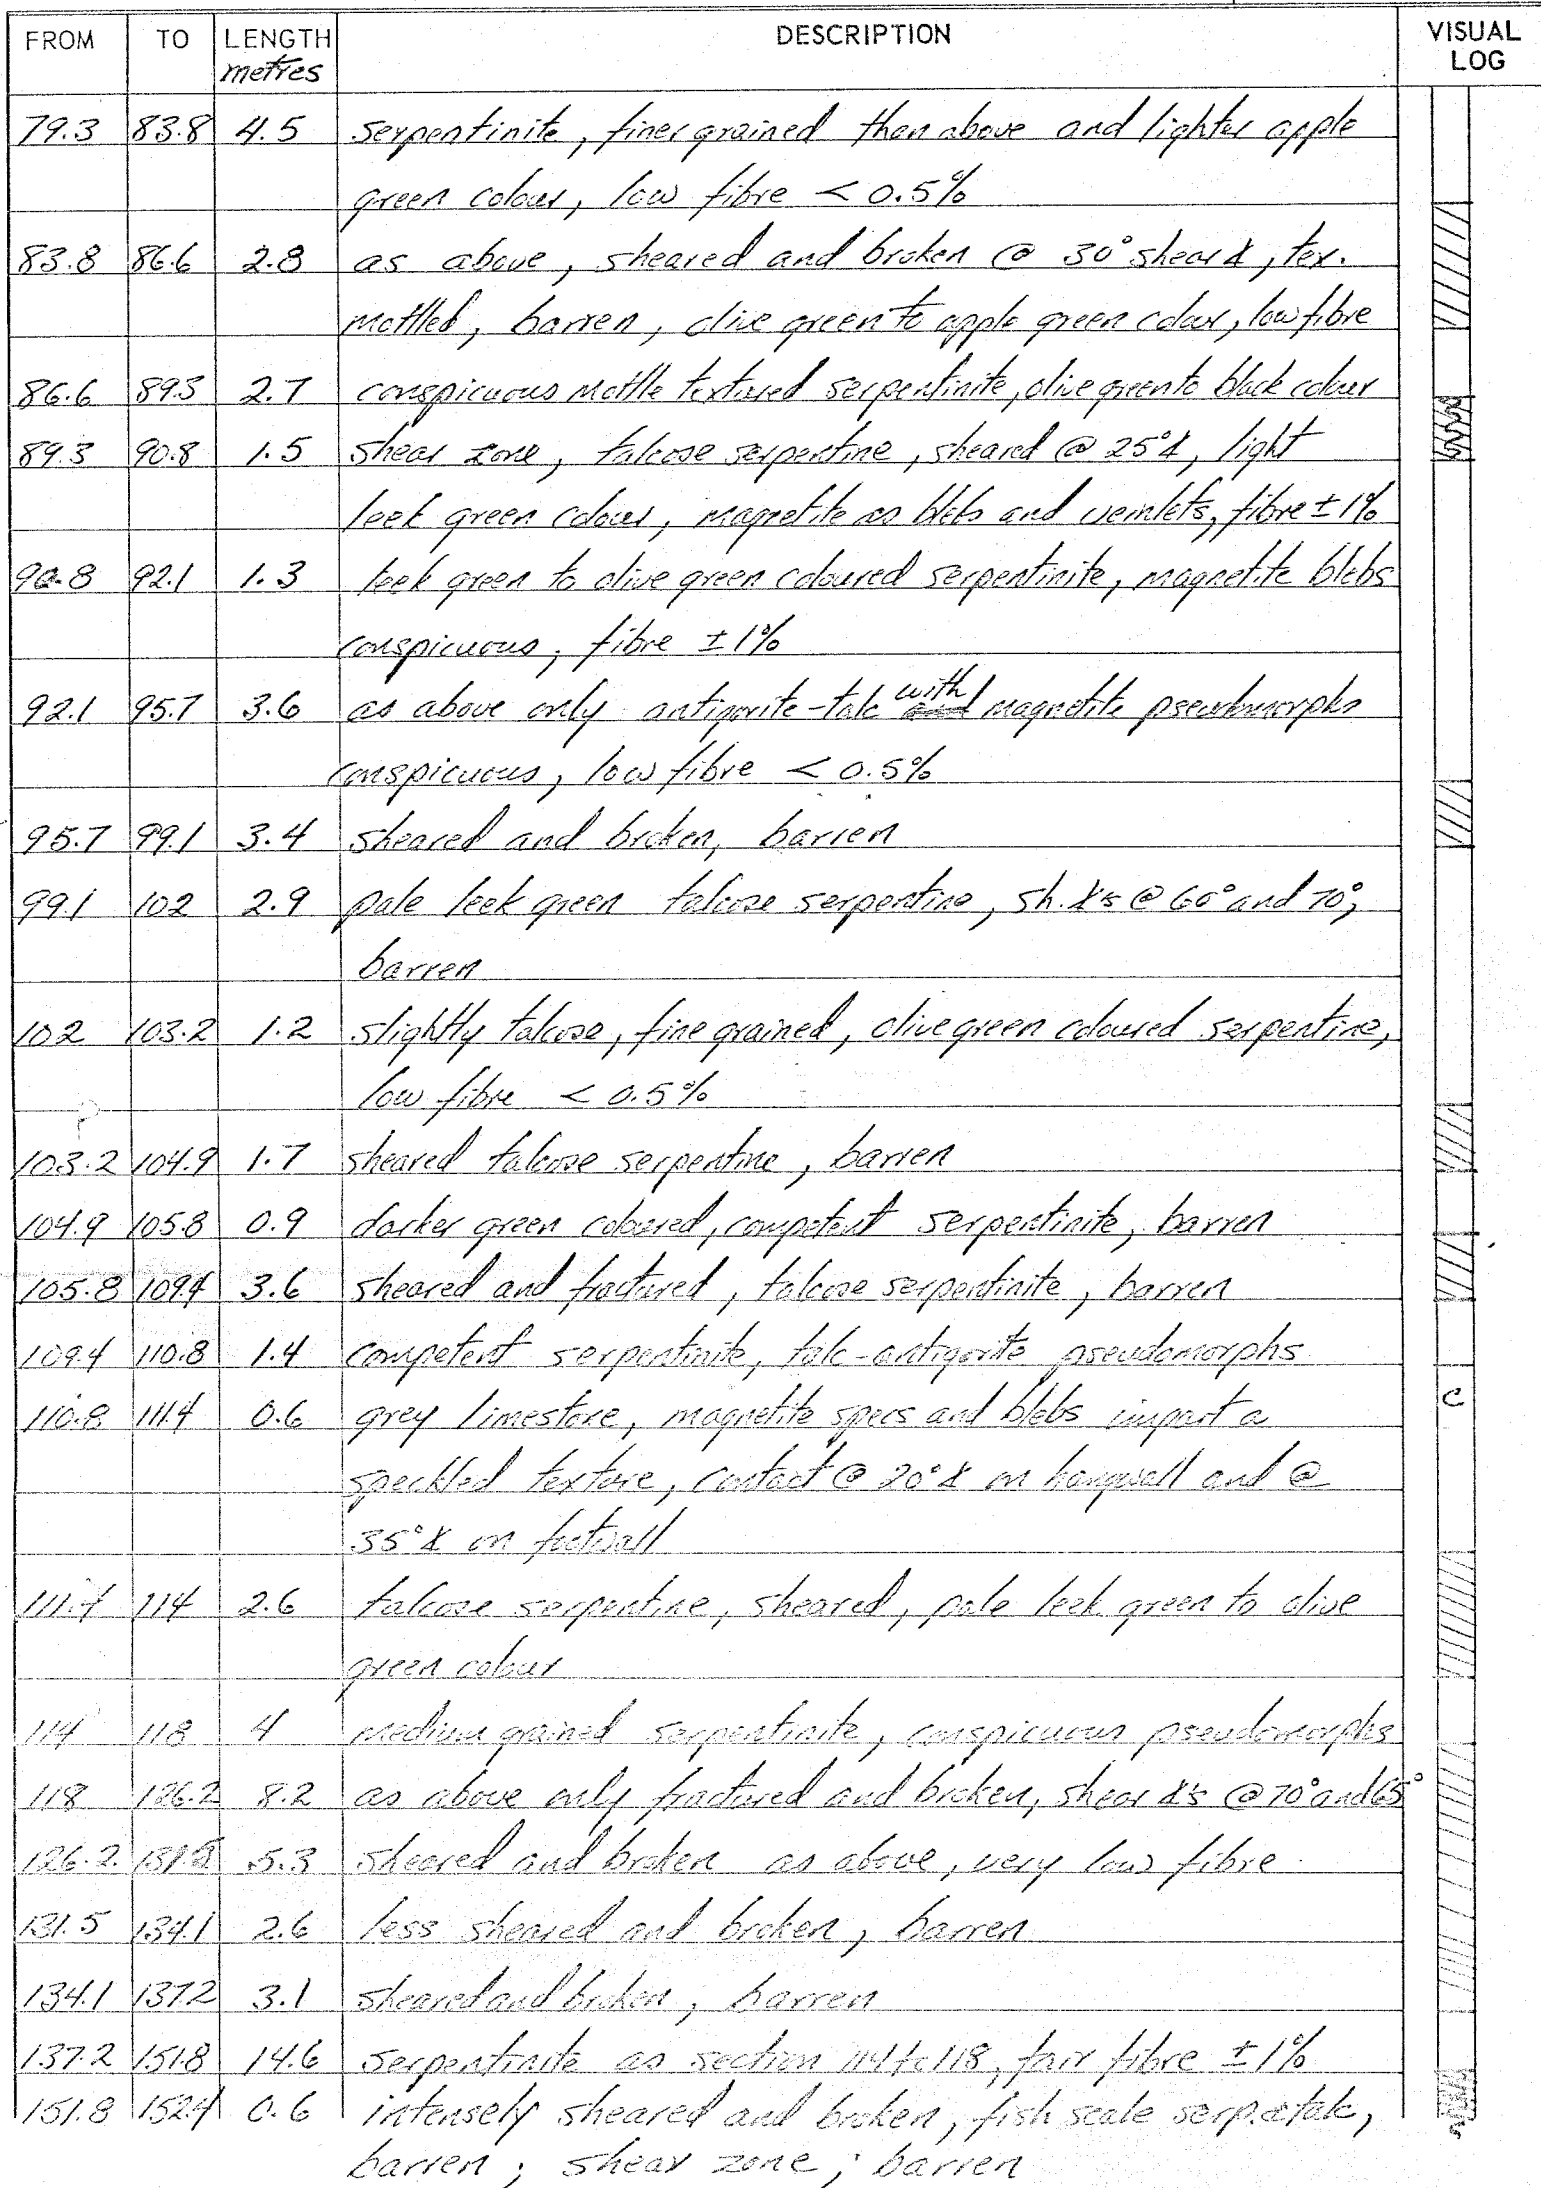 FROM TO LENGTH DESCRIPTION VISUAL
metres LOG
79.3 83.8 4.5 serpentinite, finer grained than above and lighter apple
green colour, low fibre < 0.5%
83.8 86.6 2.8 as above, sheared and broken @ 30° shear ∡, tex.
mottled, barren, olive green to apple green colour, low fibre
86.6 89.3 2.7 conspicuous mottle textured serpentinite, olive green to black colour
89.3 90.8 1.5 shear zone, talcose serpentine, sheared @ 25°∡, light
leek green colour, magnetite as blebs and veinlets, fibre ± 1%
90.8 92.1 1.3 leek green to olive green coloured serpentinite, magnetite blebs
conspicuous, fibre ± 1%
92.1 95.7 3.6 as above only antigorite-talc with magnetite pseudomorphs
conspicuous, low fibre < 0.5%
95.7 99.1 3.4 sheared and broken, barren
99.1 102 2.9 pale leek green talcose serpentine, sh. ∡'s @ 60° and 70°,
barren
102 103.2 1.2 slightly talcose, fine grained, olive green coloured serpentine,
low fibre < 0.5%
103.2 104.9 1.7 sheared talcose serpentine, barren
104.9 105.8 0.9 darker green coloured, competent serpentinite, barren
105.8 109.4 3.6 sheared and fractured, talcose serpentinite, barren
109.4 110.8 1.4 competent serpentinite, talc-antigorite pseudomorphs
110.8 111.4 0.6 grey limestone, magnetite specs and blebs impart a C
speckled texture, contact @ 20°∡ on hangwall and @
35°∡ on footwall
111.4 114 2.6 talcose serpentine, sheared, pale leek green to olive
green colour
114 118 4 medium grained serpentinite, conspicuous pseudomorphs
118 126.2 8.2 as above only fractured and broken, shear ∡'s @ 70° and 65°
126.2 131.5 5.3 sheared and broken as above, very low fibre
131.5 134.1 2.6 less sheared and broken, barren
134.1 137.2 3.1 sheared and broken, barren
137.2 151.8 14.6 serpentinite as section 114 to 118, fair fibre ± 1%
151.8 152.4 0.6 intensely sheared and broken, fish scale serp. & talc,
barren; shear zone; barren